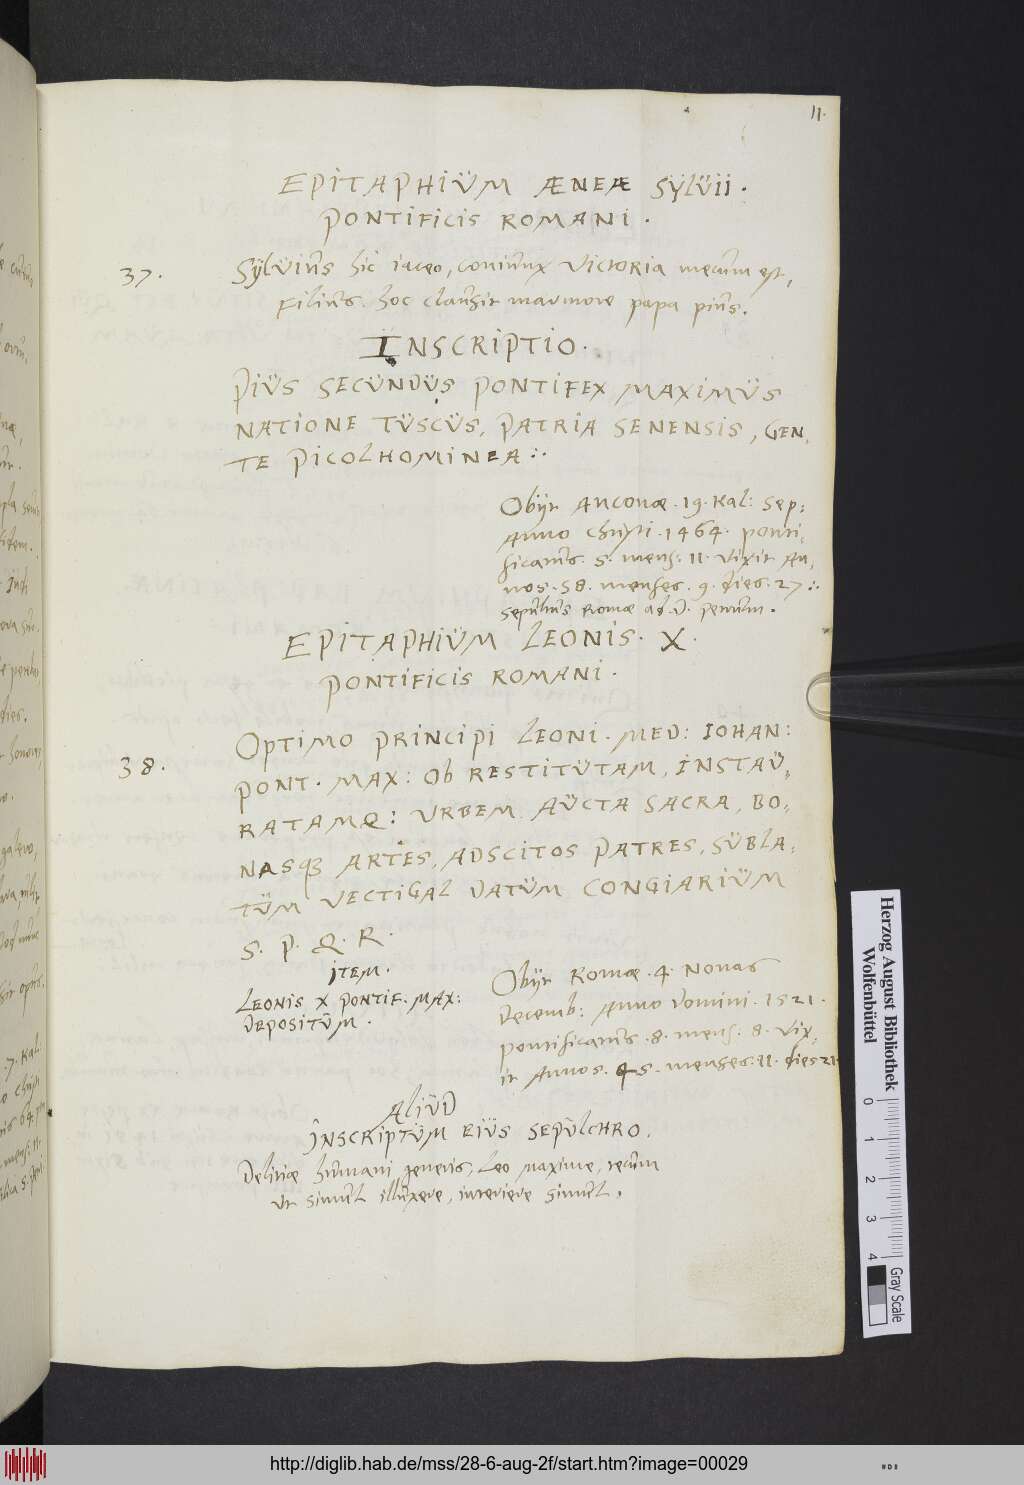 11.
EPITAPHIÜM ÆNEÆ SŸLÜII.
PONTIFICIS ROMANI.
37.
Sÿlvius hic iaceo, coniunx Victoria mecum est,
Filius hoc clausit marmore papa pius.
INSCRIPTIO.
PIÜS SECÜNDÜS PONTIFEX MAXIMÜS
NATIONE TÜSCÜS, PATRIA SENENSIS, GEN,
TE PICOLHOMINEA :.
Obijt Anconæ. 19. Kal: Sep:
Anno Christi. 1464. ponti,
ficatus. 5. mens. 11. vixit An,
nos. 58. menses. 9. dies. 27 :.
Sepultus Romæ ad. D. petrum.
EPITAPHIÜM LEONIS. X.
PONTIFICIS ROMANI.
38.
OPTIMO PRINCIPI LEONI. MED: IOHAN:
PONT. MAX: Ob RESTITÜTAM, INSTAÜ,
RATAMQ: URBEM AÜCTA SACRA, BO,
NASqз ARTES, ADSCITOS PATRES, SÜBLA,
TÜM VECTIGAL DATÜM CONGIARIÜM
S. P. Q. R.
ITEM.
LEONIS X PONTIF. MAX:
DEPOSITÜM.
Obijt Romæ. 4. Nonas
Decemb: Anno Domini. 1521.
pontificatus. 8. mens: 8. Vix,
it Annos. 45. menses. 11. dies 21.
ÆLIÜD
INSCRIPTÜM EIÜS SEPÜLCHRO.
Delitiæ humani generis, Leo maxime, tecum
Ut simul illuxere, interiere simul.
Herzog August Bibliothek
Wolfenbüttel
0 1 2 3 4
Gray Scale
http://diglib.hab.de/mss/28-6-aug-2f/start.htm?image=00029